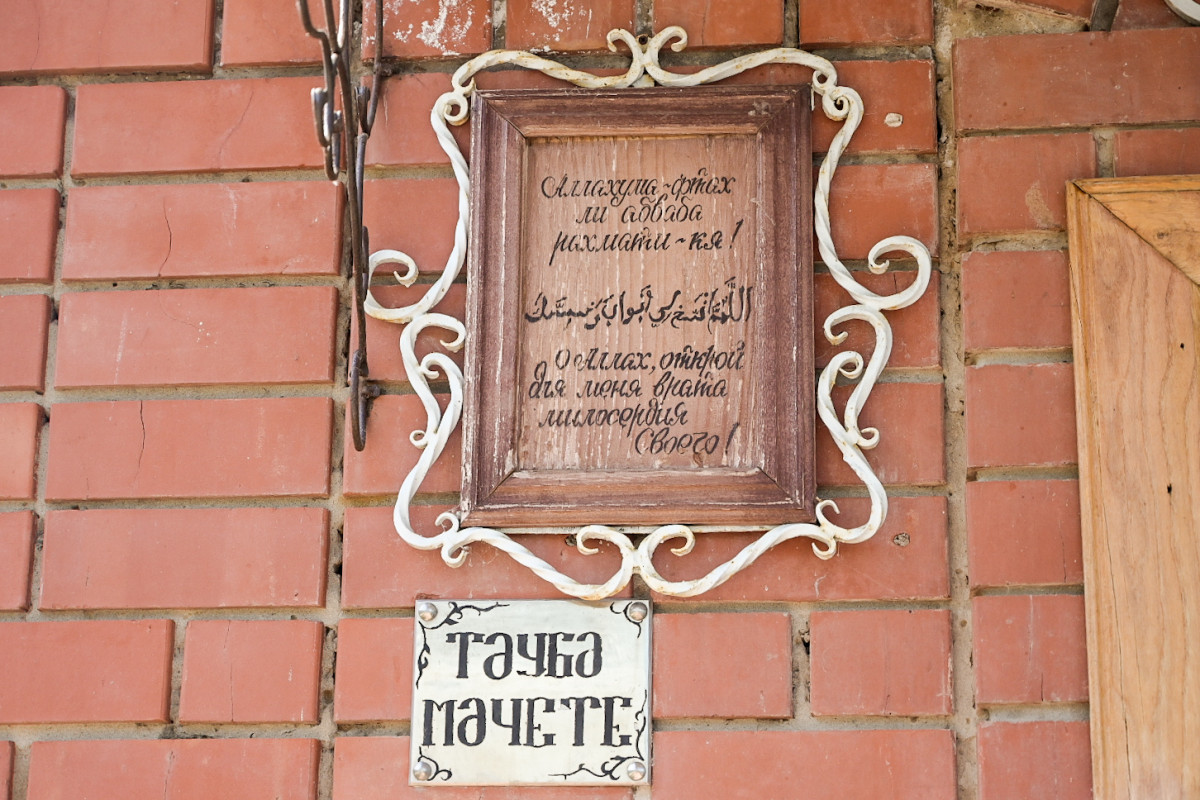 Аллахума-фтах
ли абваба
рахмати-кя!
اللَّهُمَّ افْتَحْ لِي أَبْوَابَ رَحْمَتِكَ
О Аллах, открой
для меня врата
милосердия
Своего!
ТӘУБӘ
МӘЧЕТЕ